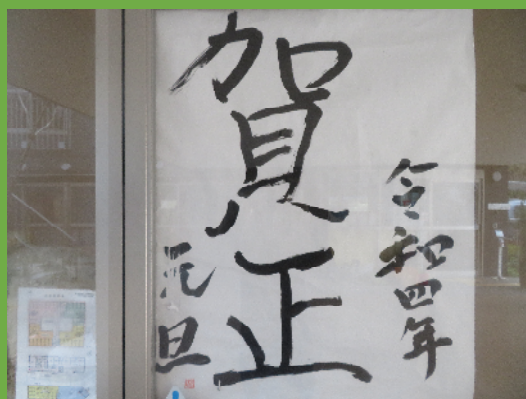 令和四年
賀正
元旦